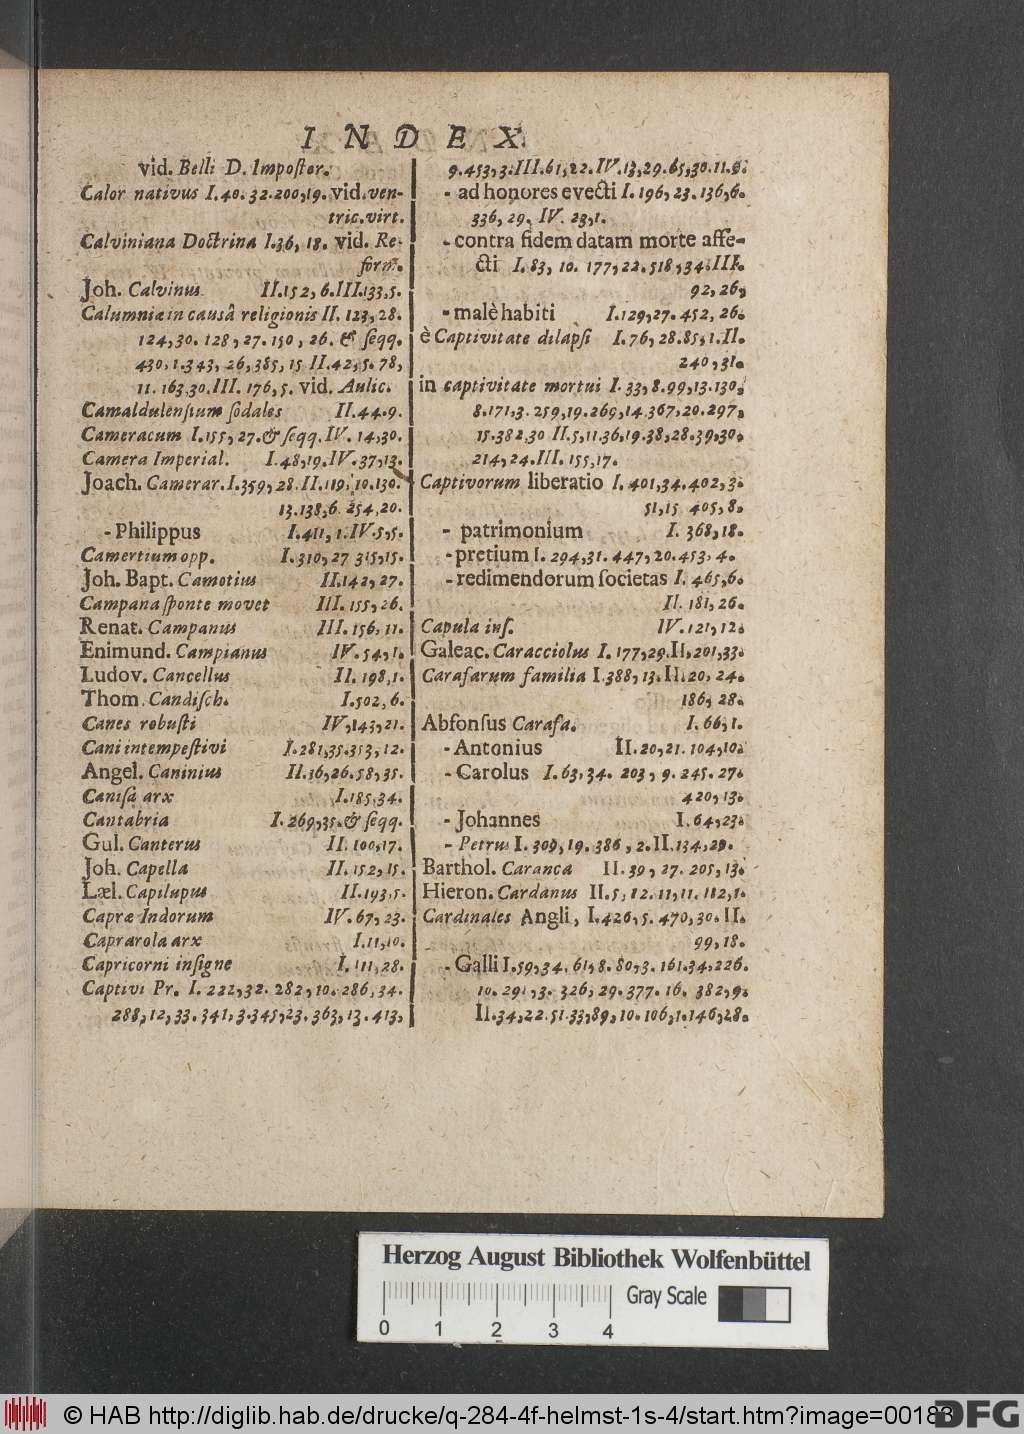 INDEX.
vid. Belli D. Impoſtor.
Calor nativus I.40. 32.200,19. vid. ven-
tric. virt.
Calviniana Doctrina I.36, 18. vid. Re-
form.
Joh. Calvinus II.152, 6.III.133,5.
Calumniæ in causâ religionis II. 123,28.
124,30. 128, 27. 150, 26. & ſeqq.
430, 1.343, 26, 385, 15 II.42,5. 78,
11. 163.30.III. 176,5. vid. Aulic.
Camaldulenſium ſodales II.44.9.
Cameracum I.155,27.& ſeqq.IV. 14,30.
Camera Imperial. I.48,19.IV.37,13.
Joach. Camerar.I.359,28.II.119,10.130.
13.138,6. 254,20.
-Philippus I.411, 1.IV.5,5.
Camertium opp. I.310,27 315,15.
Joh. Bapt. Camotius II.142,27.
Campana ſponte movet III. 155,26.
Renat. Campanus III. 156, 11.
Enimund. Campianus IV. 54,1.
Ludov. Cancellus II. 198,1.
Thom. Candiſch. I.502,6.
Canes robuſti IV,143,21.
Cani intempeſtivi I.281,35.353,12.
Angel. Caninius II.16,26.58,35.
Caniſa arx I.185,34.
Cantabria I. 269,35.& ſeqq.
Gul. Canterus II. 100,17.
Joh. Capella II. 152, 15.
Læl. Capilupus II.193,5.
Capræ Indorum IV. 67, 23.
Caprarola arx I.11,10.
Capricorni inſigne I. 111,28.
Captivi Pr. I. 222,32. 282,10. 286,34.
288,12,33. 341,3.345,23. 363,13. 413,
9.453,3.III.61,22.IV.13,29.65,30.11.9.
- ad honores evecti I. 196,23. 136,6.
336, 29. IV. 23,1.
- contra fidem datam morte affe-
cti I. 83, 10. 177,22.518,34.III.
92,26,
- malè habiti I.129,27. 452, 26.
è Captivitate dilapſi I. 76,28.85,1.II.
240,31.
in captivitate mortui I. 33,8.99,13.130,
8.171,3. 259,19.269,14.367,20.297,
15.382.30 II.5,11.36,19.38,28.39,30.
214,24.III. 155,17.
Captivorum liberatio I. 401,34.402,3.
51,15 405,8.
- patrimonium I. 368,18.
- pretium I. 294,31. 447,20.453, 4.
- redimendorum ſocietas I. 465,6.
II. 181,26.
Capula inſ. IV. 121,12.
Galeac. Caracciolus I. 177,29.II.201,33.
Carafarum familia I.388,13.II.20, 24.
186, 28.
Abfonſus Carafa. I. 66,1.
- Antonius II.20,21. 104,10.
- Carolus I.63,34. 203, 9. 245. 27.
420,13.
- Johannes I.64,23.
- Petrus I. 309,19. 386, 2.II.134,29.
Barthol. Caranca II.39, 27. 205,13.
Hieron. Cardanus II.5, 12. 11,11. 112,1.
Cardinales Angli, I.426,5. 470,30.II.
99,18.
- Galli I.59,34. 61,8. 80,3. 161.34,226.
10. 291,3. 326, 29.377. 16. 382,9.
II.34,22.51.33,89,10. 106,1.146,28.
Herzog August Bibliothek Wolfenbüttel
Gray Scale
0 1 2 3 4
© HAB http://diglib.hab.de/drucke/q-284-4f-helmst-1s-4/start.htm?image=00183
DFG